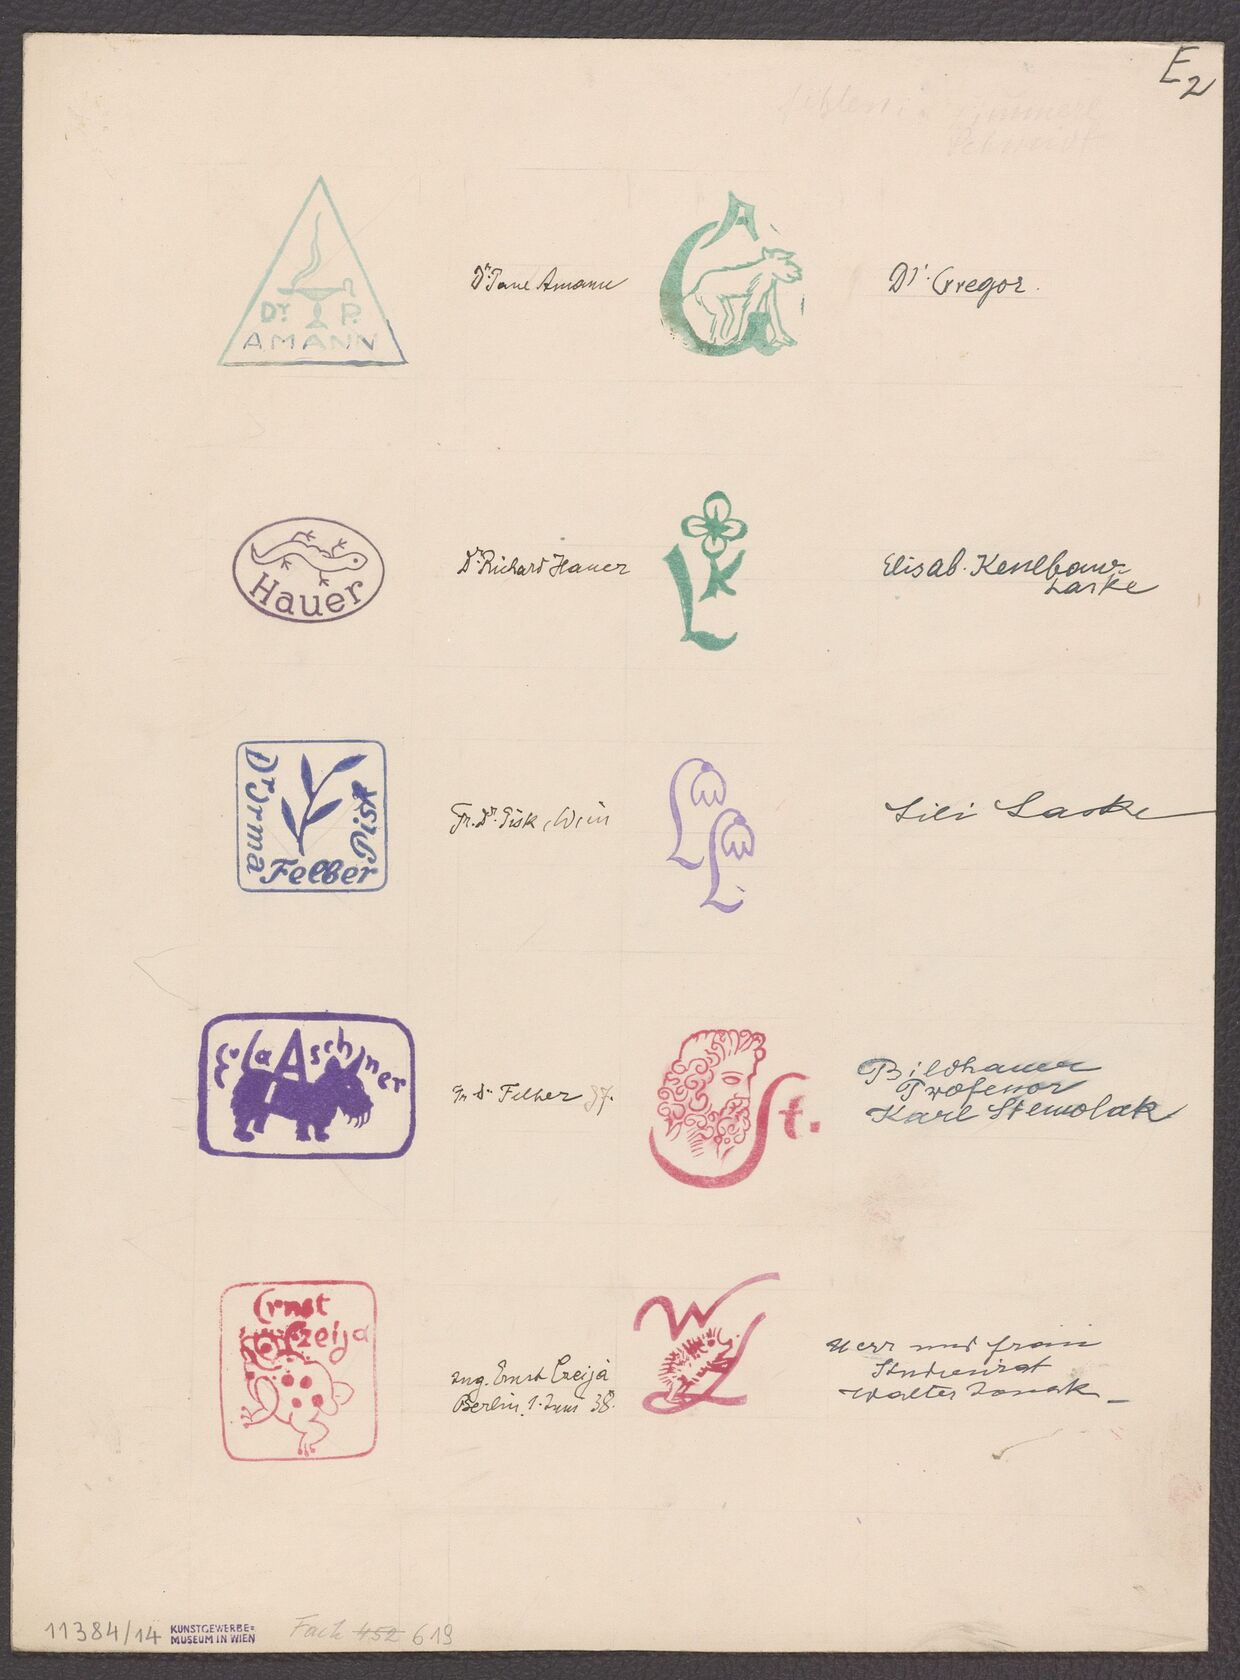 E2
Dr. P.
AMANN
Dr Paul Amann
A
G
Dr. Gregor.
Hauer
Dr Richard Hauer
L K
Elisab. Keulbaur
Laske
Dr Irma
Felber
Disk
Fr. Dr. Disk, Wien
L L
Lili Laske
Eva Aschner
Dr Felber 37.
St.
Bildhauer
Professor
Karl Stemolak
Ernst
Czeija
Ing. Ernst Czeija
Berlin, 1. Juni 38.
W
Herr und Frau
Studienrat
Walter
11384/14
KUNSTGEWERBE=
MUSEUM IN WIEN
Fach 452 619